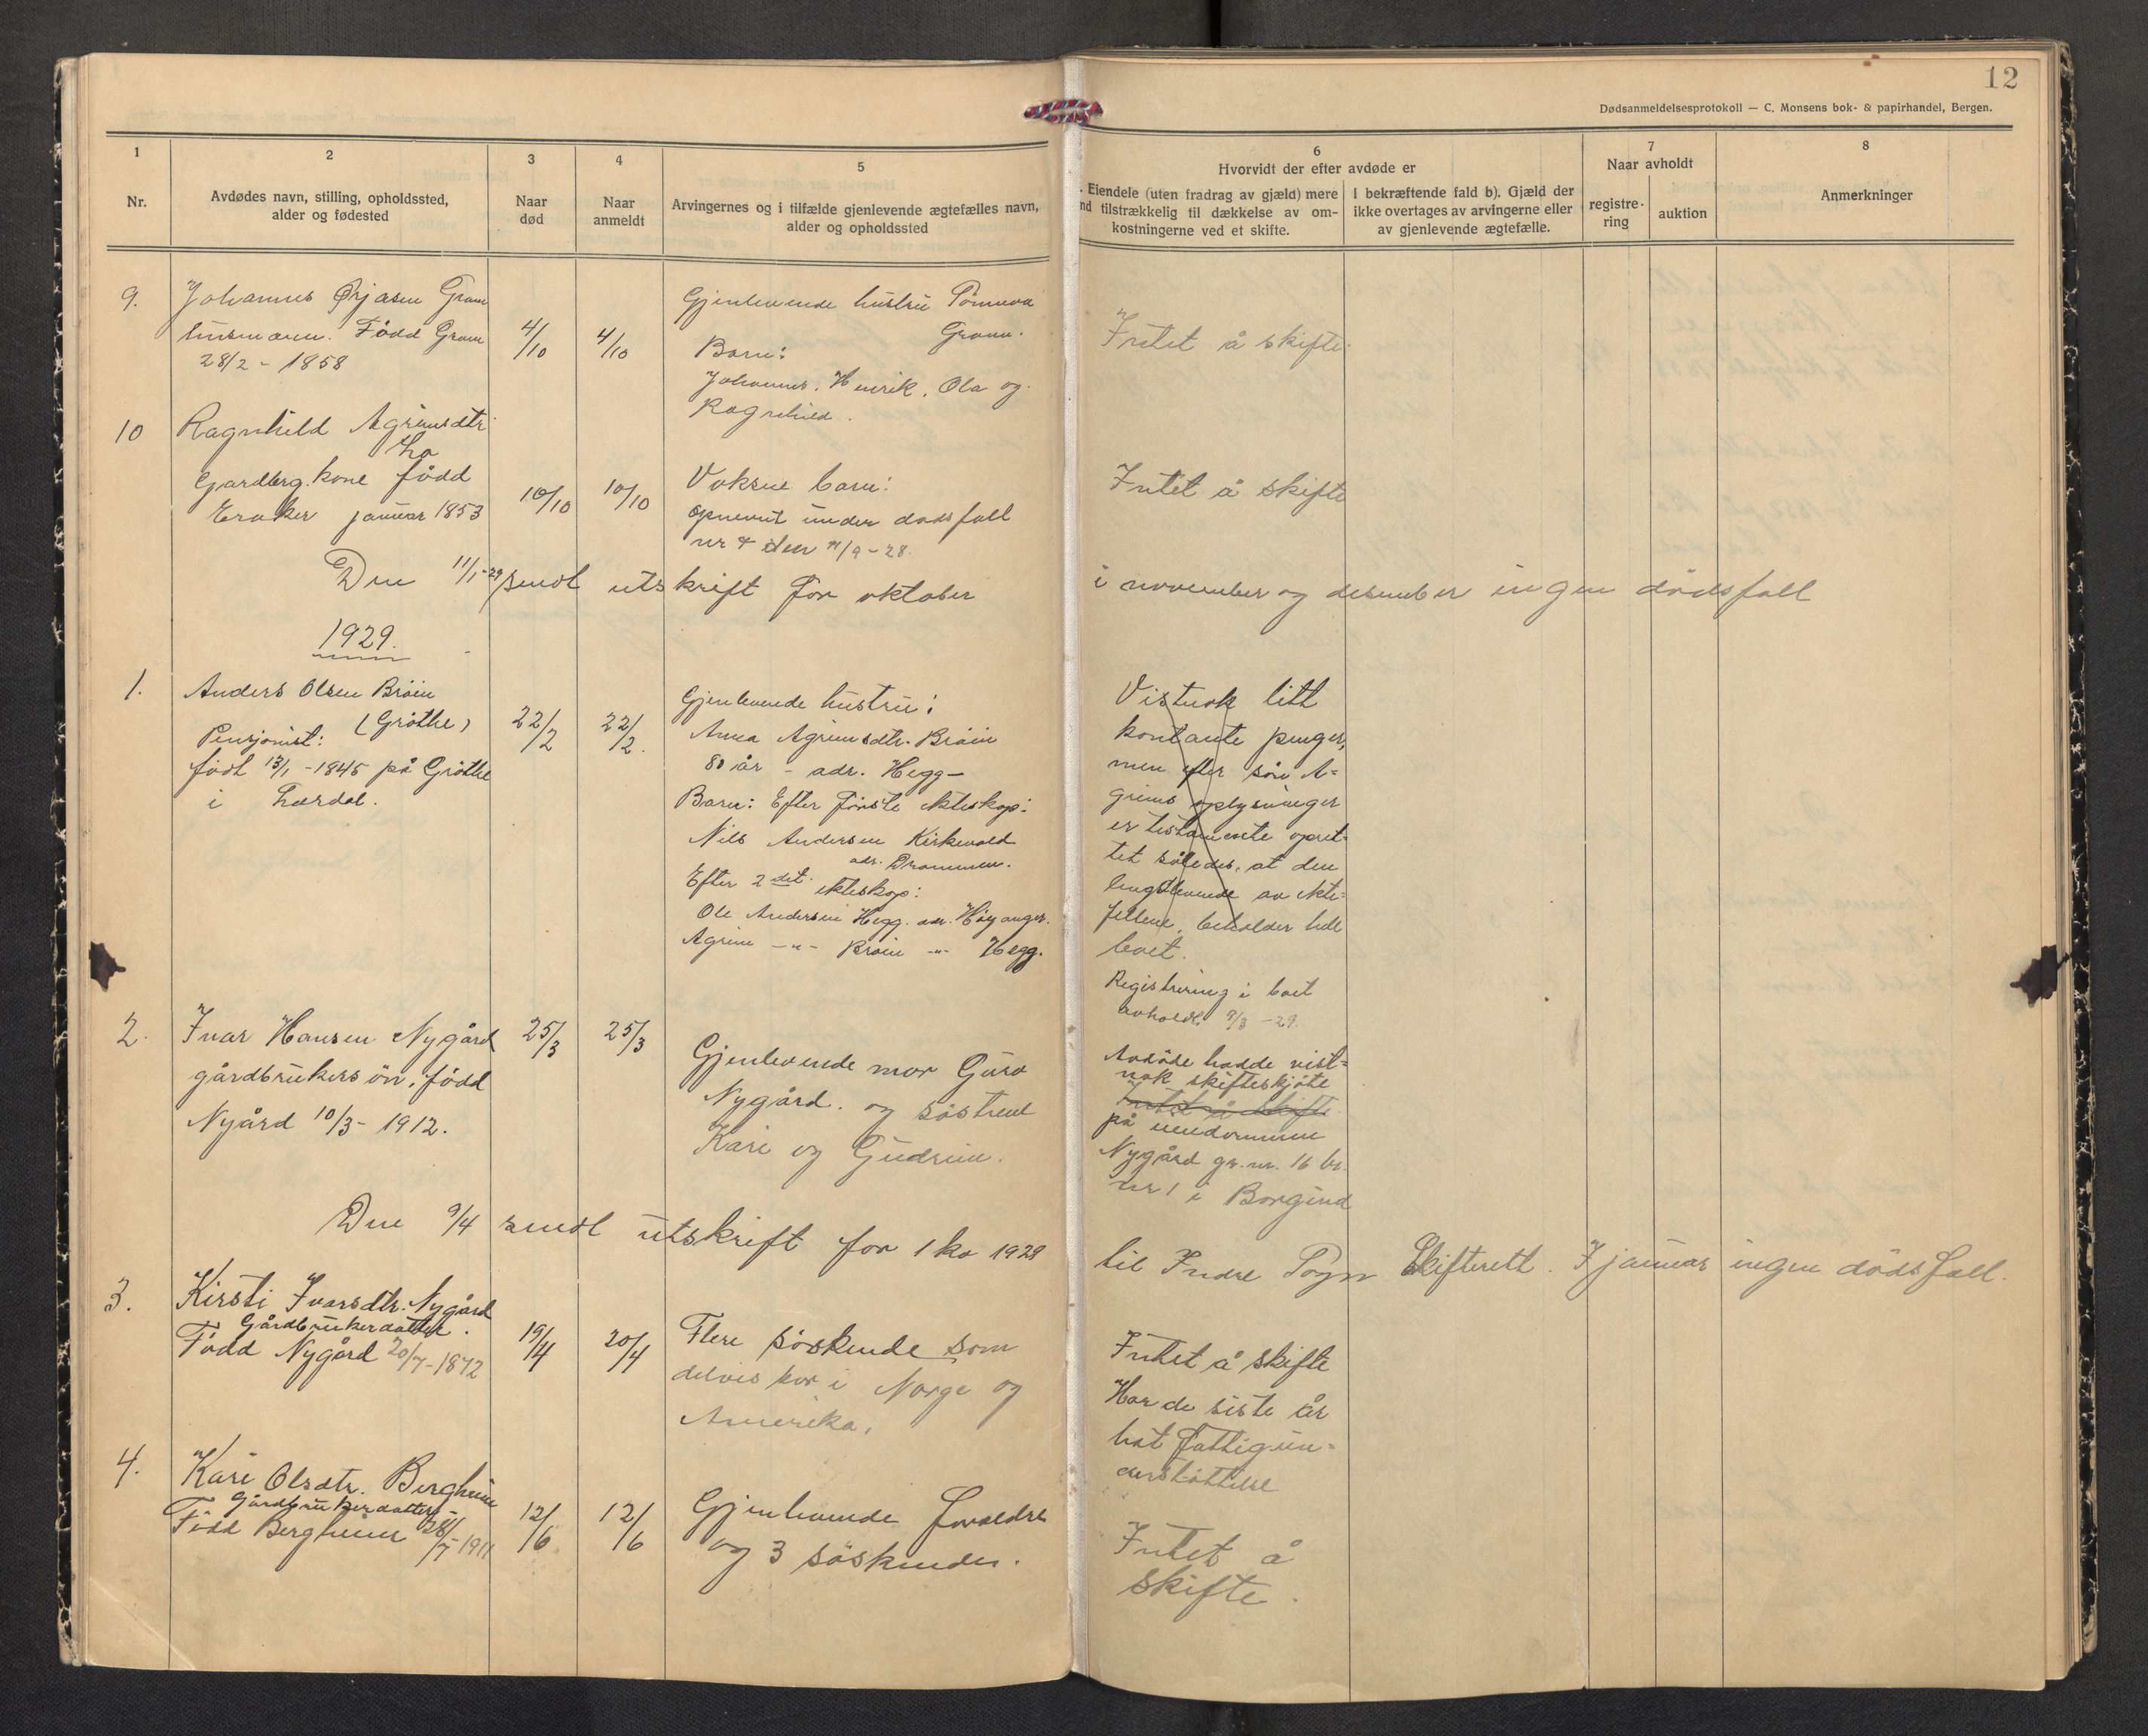 12
Dødsanmeldelsesprotokoll — C. Monsens bok- & papirhandel, Bergen.
1
Nr.
2
Avdødes navn, stilling, opholdssted,
alder og fødested
3
Naar
død
4
Naar
anmeldt
5
Arvingernes og i tilfælde gjenlevende ægtefælles navn,
alder og opholdssted
6
Hvorvidt der efter avdøde er
Eiendele (uten fradrag av gjæld) mere
nd tilstrækkelig til dækkelse av om-
kostningerne ved et skifte.
I bekræftende fald b). Gjæld der
ikke overtages av arvingerne eller
av gjenlevende ægtefælle.
7
Naar avholdt
registre-
ring
auktion
8
Anmerkninger
9.
Johannes Ørjasen Gram
husmann. Född Gram
28/2 - 1858
4/10
4/10
Gjenlevende hustru
Gram.
Barn:
Johannes, Henrik, Ola og
Ragnhild.
Intet å skifte.
10
Ragnhild Agrimsdtr
Lo
Gardberg. kone född
Eraker januar 1853
10/10
10/10
Voksne barn:
opnevnt under dödsfall
nr 4 den /9-28.
Intet å skifte
Den 11/1-29 sendt utskrift for oktober
i november og desember ingen dödsfall
1929.
1.
Anders Olsen Bröin
(Gröthe)
Pensjonist:
födt 13/1 -1845 på Gröthe
i Lærdal.
22/2
22/2.
Gjenlevende hustru:
Anna Agrimsdtr. Bröin
80 år - adr. Hegg-
Barn: Efter förste ekteskap:
Nils Andersen Kirkevold
adr. Drammen.
Efter 2det ekteskap:
Ole Andersen Hegg. adr. Höyanger.
Agrim -"- Bröin -"- Hegg.
Vistnok litt
kontante penger,
men efter sön A=
grims oplysninger
er testamente opret-
tet således, at den
lengstlevende av ekte-
fellene, beholder hele
boet.
Registrering i boet
avholdt 9/3 -29.
2.
Ivar Hansen Nygård
gårdbrukersön, född
Nygård 10/3- 1912.
25/3
25/3
Gjenlevende mor Guro
Nygård. og söstrene
Kari og Gudrun.
Avdöde hadde vist=
nok skifteskjöte
Intet å skifte.
på eiendommen
Nygård gr. nr. 16 br.
nr 1 i Borgund
Den 9/4 sendt utskrift for 1 kv 1929
til Indre Sogn Skifterett. I januar ingen dödsfall.
3.
Kirsti Ivarsdtr. Nygård
Gårdbrukerdatter.
Född Nygård 20/7-1872
19/4
20/4
Flere söskende som
delvis bor i Norge og
Amerika.
Intet å skifte
Har de siste år
hat fattigun-
derstöttelse
4.
Kari Olsdtr. Berghem
Gårdbrukerdatter-
Född Berghem 28/5 1911
12/6
12/6
Gjenlevende foreldre
og 3 söskender.
Intet å
skifte.